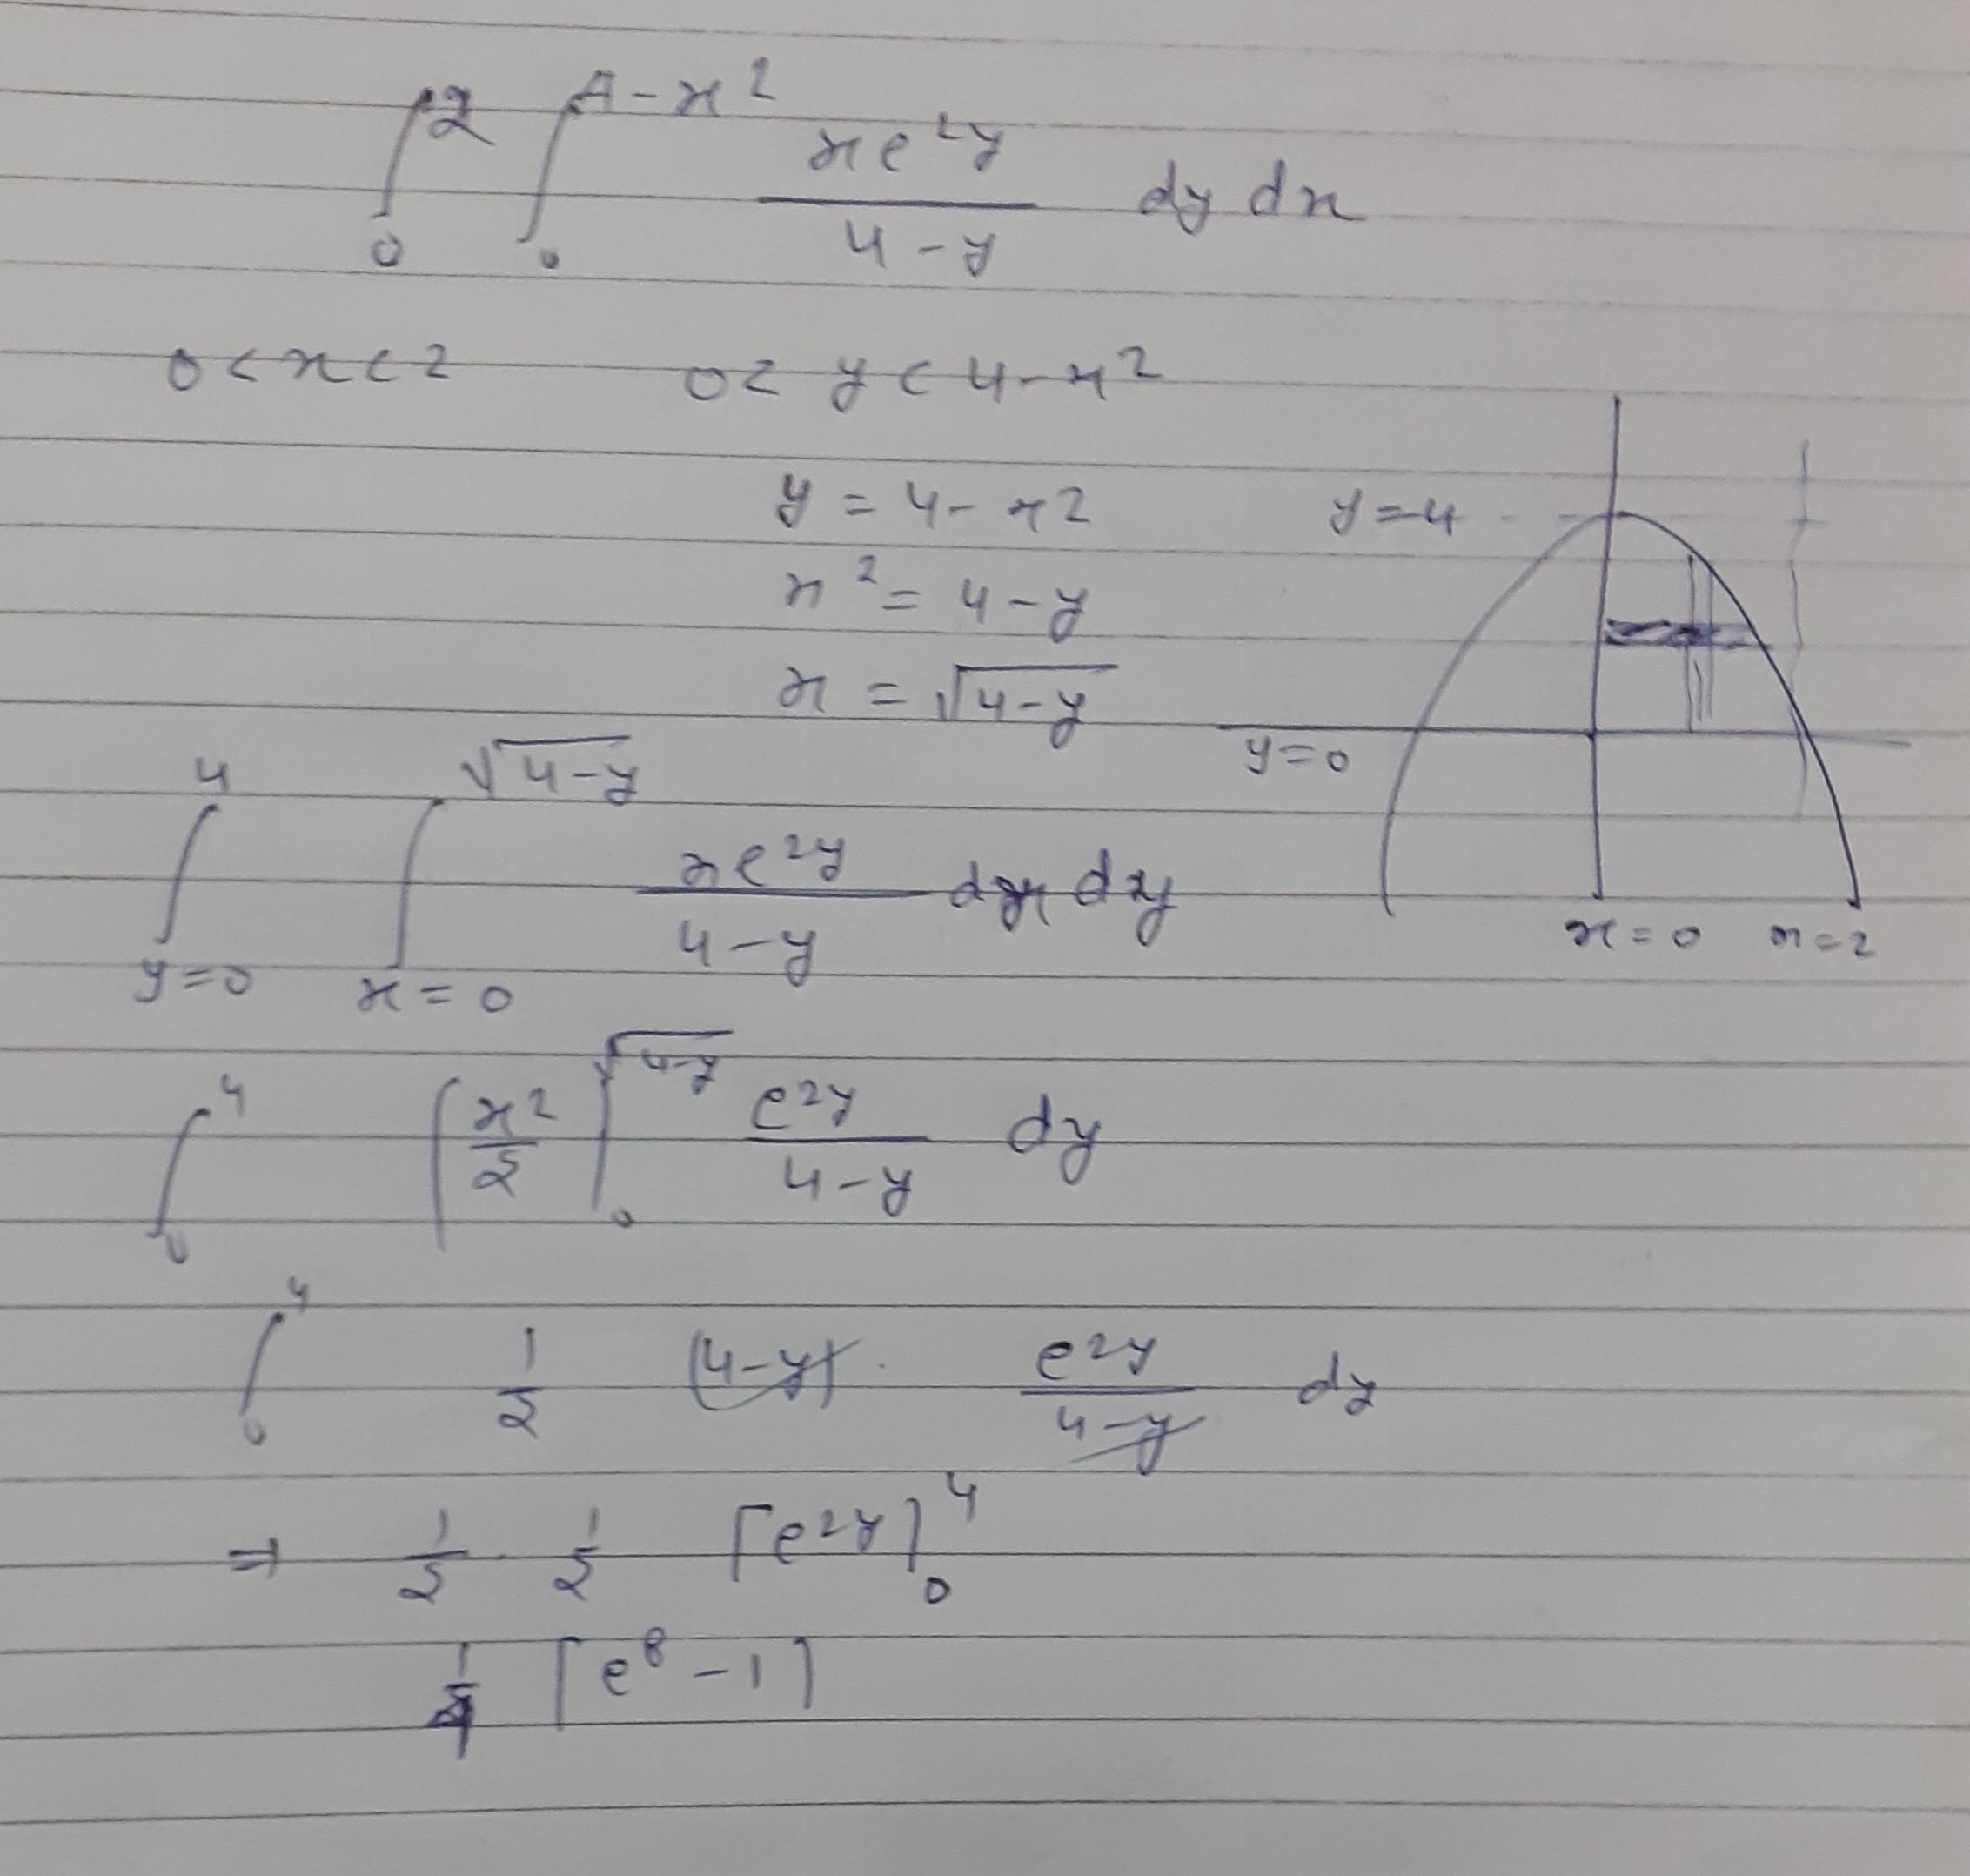 ∫₀² ∫₀^(4-x²) xe^(2y)/(4-y) dy dx
0<x<2 0< y < 4-x²
y = 4-x2
x² = 4-y
x = √(4-y)
y=4
y=0
x=0 x=2
∫_(y=0)^4 ∫_(x=0)^(√(4-y)) xe^(2y)/(4-y) dx dy
∫₀⁴ [x²/2]₀^(√(4-y)) e^(2y)/(4-y) dy
∫₀⁴ 1/2 (4-y) · e^(2y)/(4-y) dy
⇒ 1/2 · 1/2 [e^(2y)]₀⁴
1/4 [e⁸ -1]